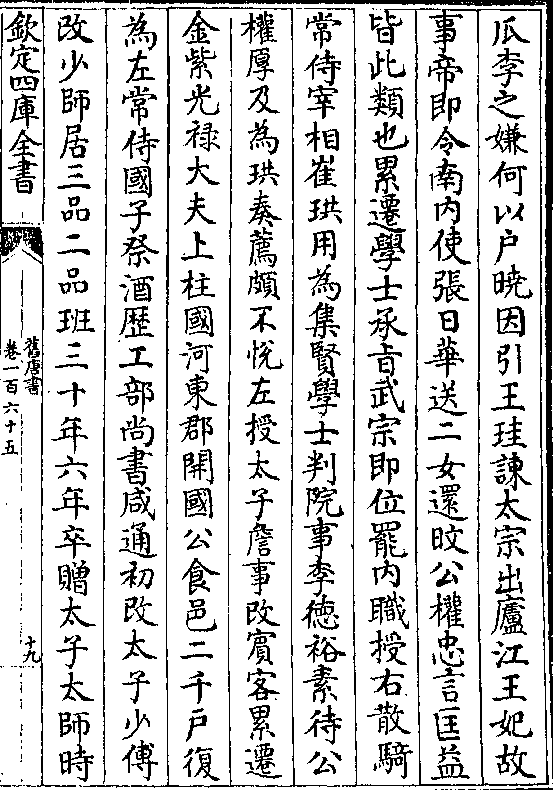 瓜李之嫌何以户曉因引王珪諫太宗出廬江王妃故
事帝即令南内使張日華送二女還旼公權忠言匡益
皆此類也累遷學士承旨武宗即位罷内職授右散騎
常侍宰相崔珙用為集賢學士判院事李德裕素待公
權厚及為珙奏薦頗不悅左授太子詹事改賓客累遷
金紫光禄大夫上柱國河東郡開國公食邑二千戸復
為左常侍國子祭酒歴工部尚書咸通初改太子少傅
改少師居三品二品班三十年六年卒贈太子太師時
欽定四庫全書
舊唐書
卷一百六十五
十九